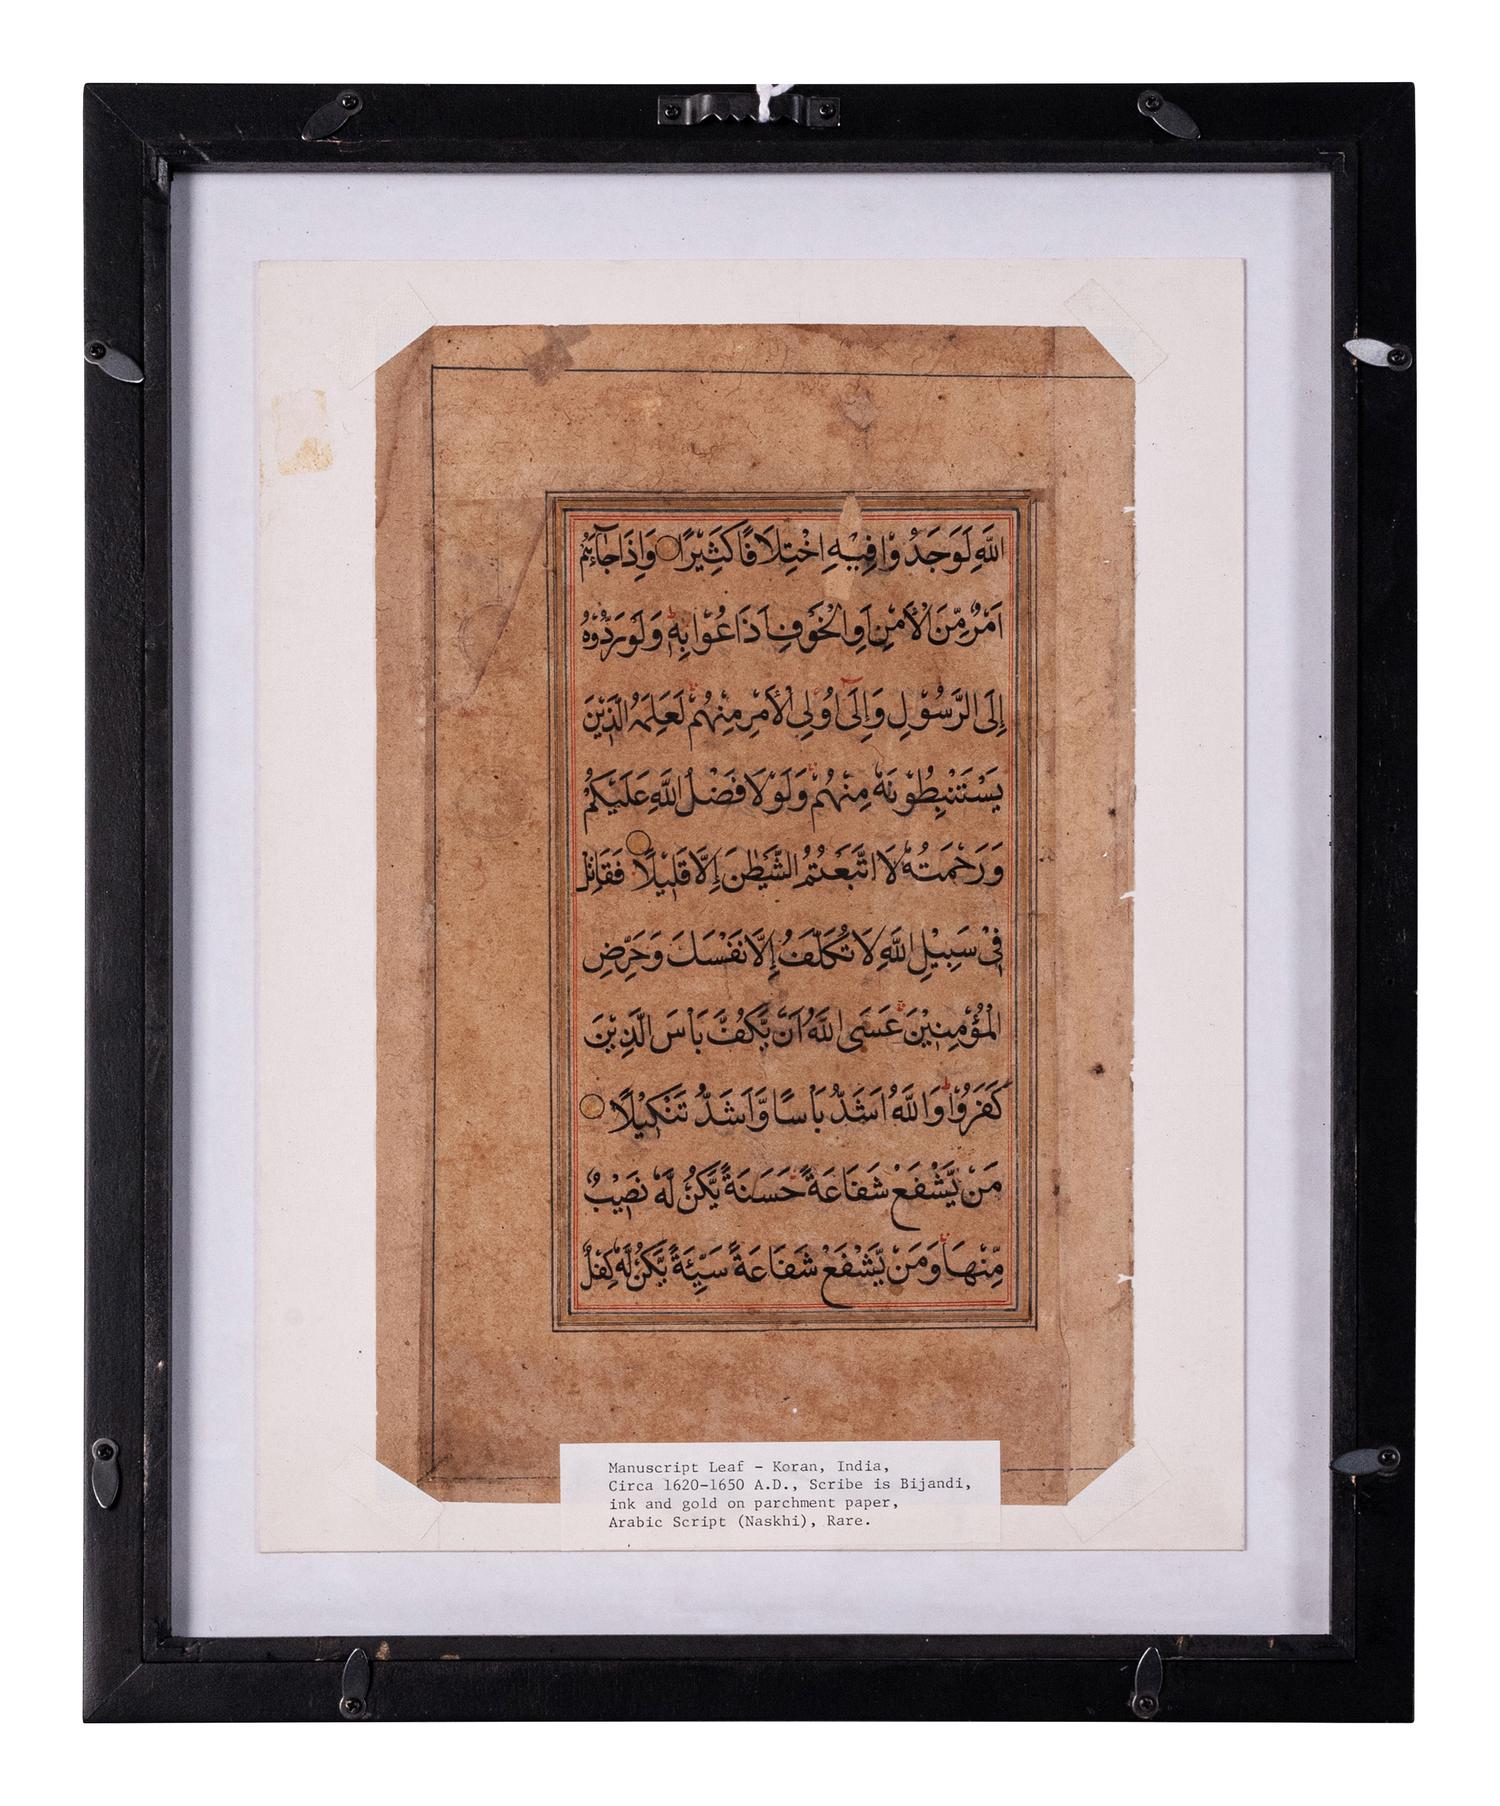 اللّٰهِ لَوَجَدُوْا فِيْهِ اخْتِلَافًا كَثِيْرًا وَاِذَا جَآءَهُمْ
اَمْرٌ مِّنَ الْاَمْنِ اَوِ الْخَوْفِ اَذَاعُوْا بِهٖ وَلَوْ رَدُّوْهُ
اِلَى الرَّسُوْلِ وَاِلٰٓى اُولِي الْاَمْرِ مِنْهُمْ لَعَلِمَهُ الَّذِيْنَ
يَسْتَنْبِطُوْنَهٗ مِنْهُمْ وَلَوْلَا فَضْلُ اللّٰهِ عَلَيْكُمْ
وَرَحْمَتُهٗ لَاتَّبَعْتُمُ الشَّيْطٰنَ اِلَّا قَلِيْلًا فَقَاتِلْ
فِيْ سَبِيْلِ اللّٰهِ لَا تُكَلَّفُ اِلَّا نَفْسَكَ وَحَرِّضِ
الْمُؤْمِنِيْنَ عَسَى اللّٰهُ اَنْ يَّكُفَّ بَاْسَ الَّذِيْنَ
كَفَرُوْا وَاللّٰهُ اَشَدُّ بَاْسًا وَّاَشَدُّ تَنْكِيْلًا
مَنْ يَّشْفَعْ شَفَاعَةً حَسَنَةً يَّكُنْ لَّهٗ نَصِيْبٌ
مِّنْهَا وَمَنْ يَّشْفَعْ شَفَاعَةً سَيِّئَةً يَّكُنْ لَّهٗ كِفْلٌ
Manuscript Leaf - Koran, India,
Circa 1620-1650 A.D., Scribe is Bijandi,
ink and gold on parchment paper,
Arabic Script (Naskhi), Rare.